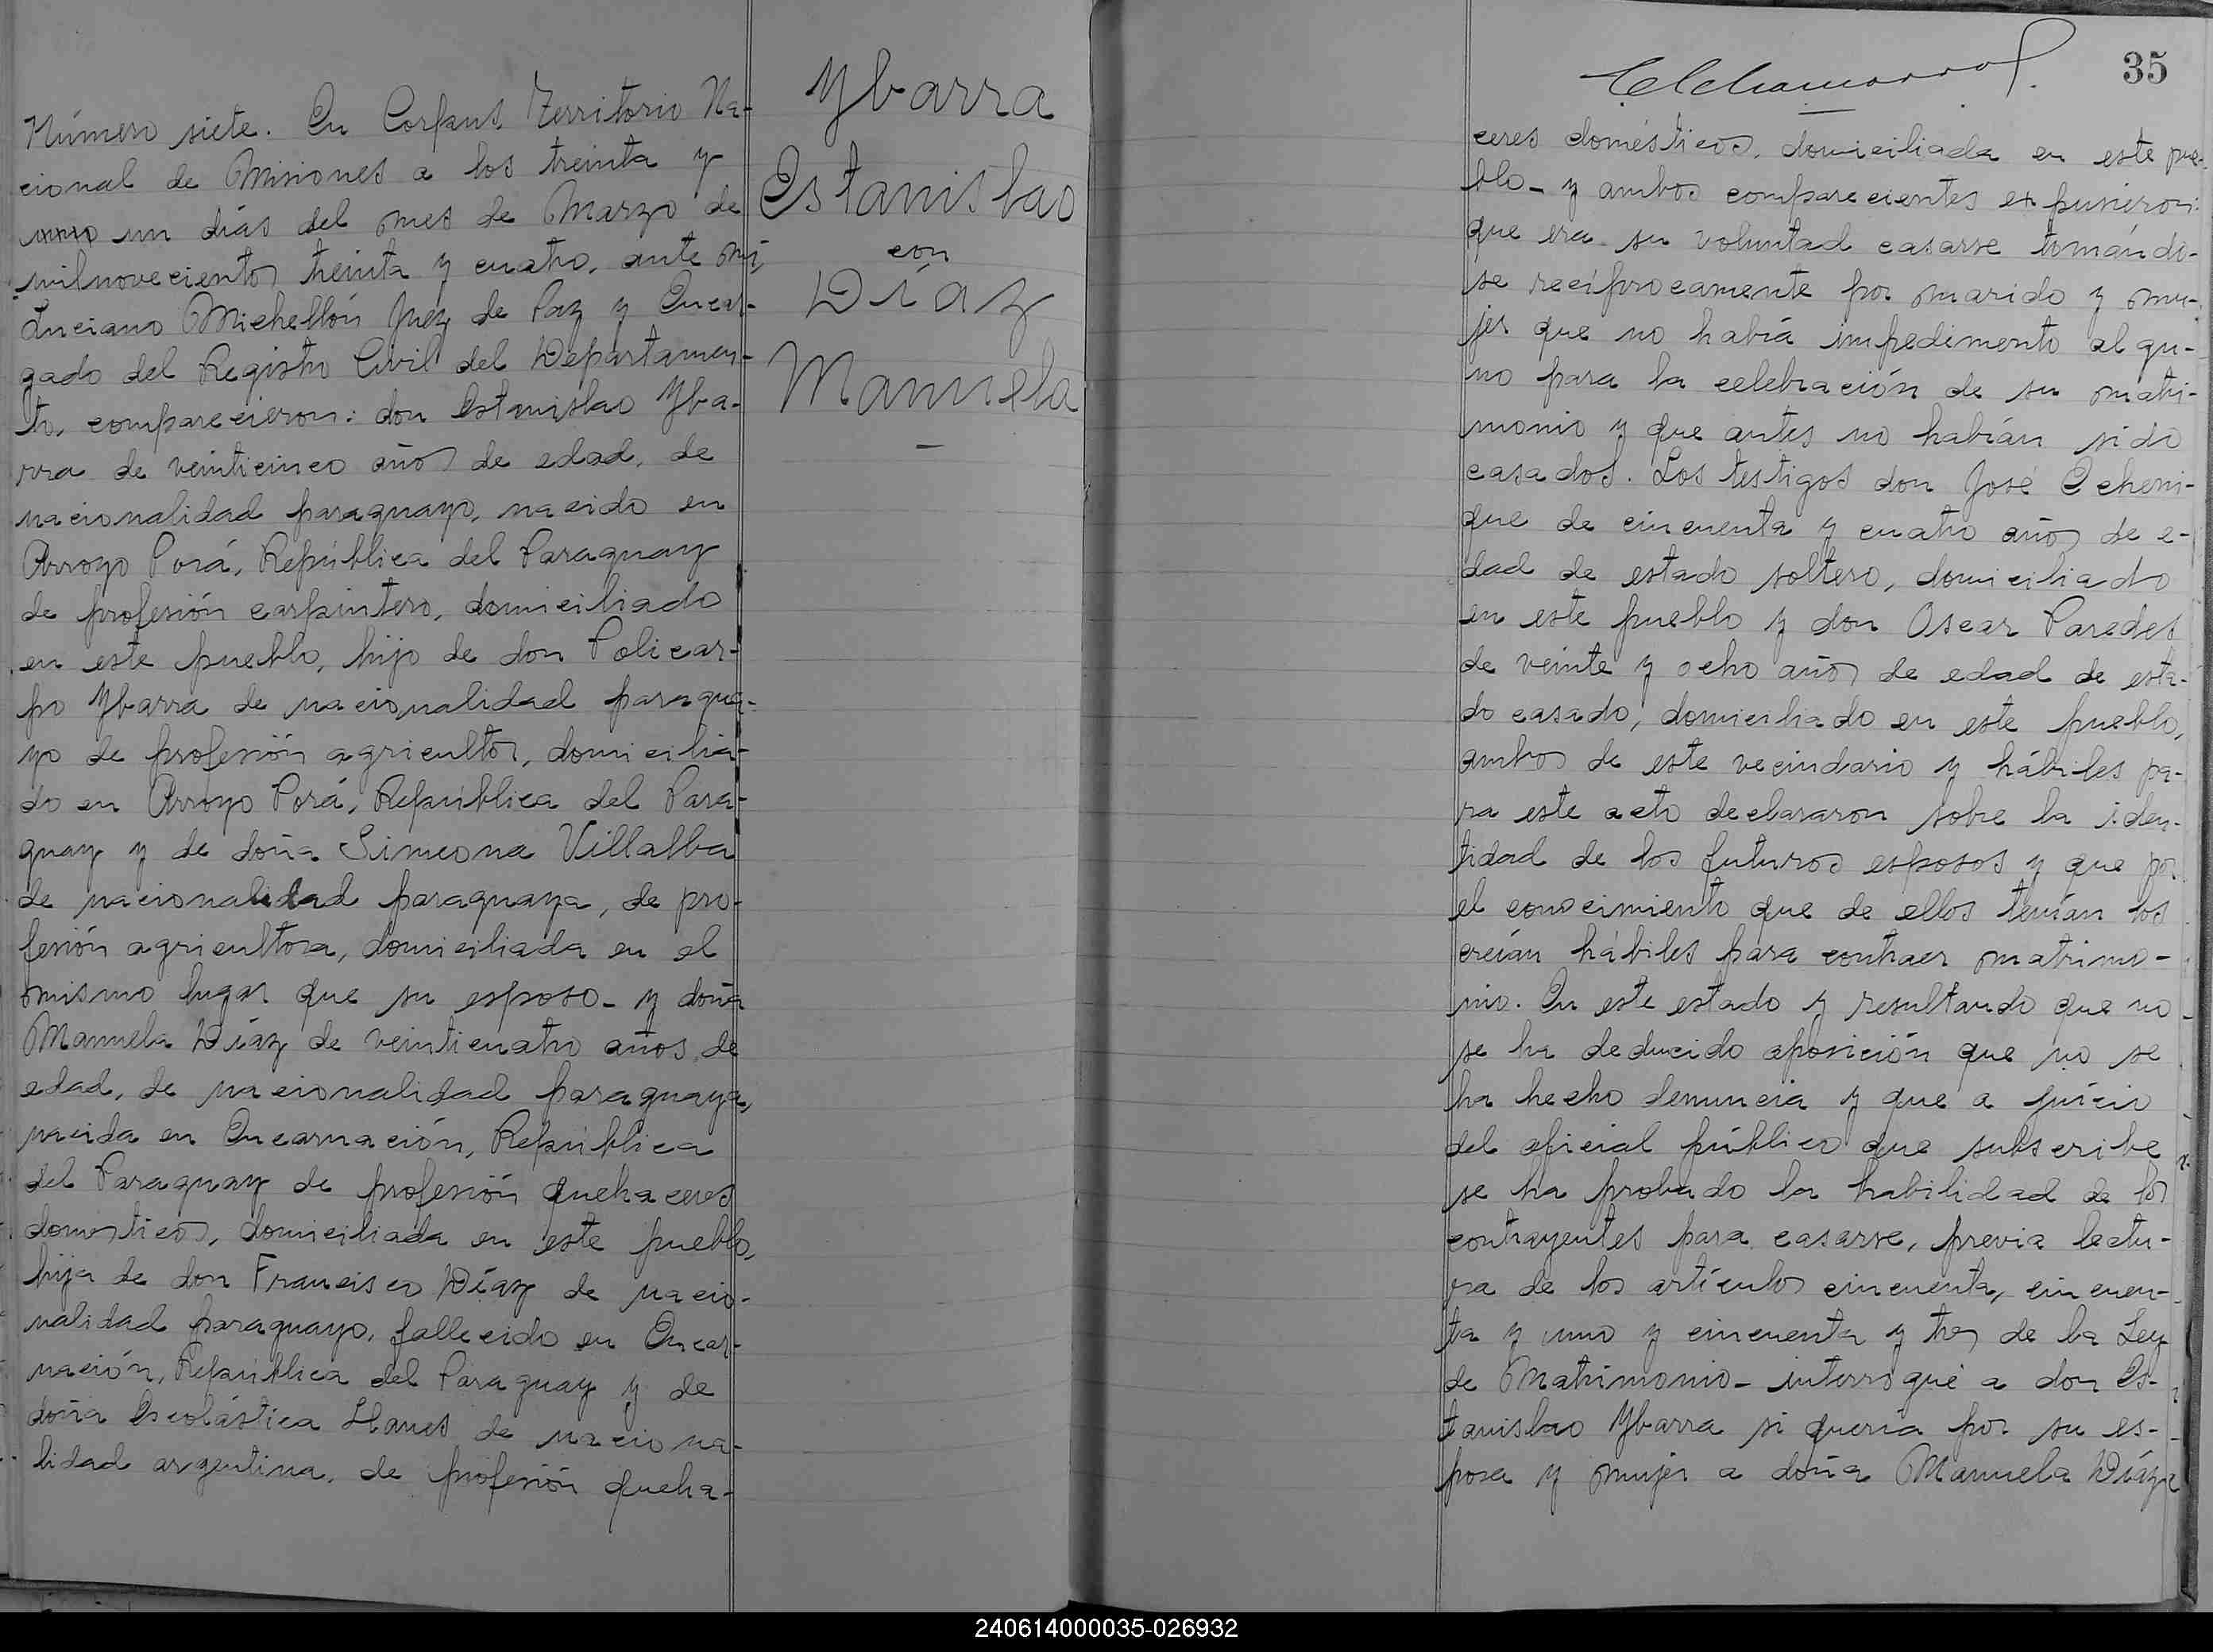 Número siete. En Corpus. Territorio Na-
cional de Misiones a los treinta y
un días del mes de Marzo de
milnovecientos treinta y cuatro, ante mí,
Luciano Michellón Juez de Paz y Encar-
gado del Registro Civil del Departamen-
to, comparecieron: don Estanislao Yba-
rra de veinticinco años de edad, de
nacionalidad paraguayo, nacido en
Arroyo Porá, República del Paraguay
de profesión carpintero, domiciliado
en este pueblo, hijo de don Policar-
po Ybarra de nacionalidad paragua-
yo de profesión agricultor, domicilia-
do en Arroyo Porá, República del Para-
guay y de doña Simeona Villalba
de nacionalidad paraguaya, de pro-
fesión agricultora, domiciliada en el
mismo lugar que su esposo- y doña
Manuela Díaz de veinticuatro años de
edad, de nacionalidad paraguaya,
nacida en Encarnación, República
del Paraguay de profesión quehaceres
domésticos, domiciliada en este pueblo,
hija de don Francisco Díaz de nacio-
nalidad paraguayo, fallecido en Encar-
nación, República del Paraguay y de
doña Escolástica Llanes de naciona-
lidad argentina, de profesión queha-
Ybarra
Estanislao
con
Díaz
Manuela
35
ceres domésticos, domiciliada en este pue-
blo- y ambos comparecientes expusieron:
que era su voluntad casarse tomándo-
se recíprocamente por marido y mu-
jer que no había impedimento algu-
no para la celebración de su matri-
monio y que antes no habían sido
casados. Los testigos don José Echeni-
que de cincuenta y cuatro años de e-
dad de estado soltero, domiciliado
en este pueblo y don Oscar Paredes
de veinte y ocho años de edad de esta-
do casado, domiciliado en este pueblo,
ambos de este vecindario y hábiles pa-
ra este acto declararon sobre la iden-
tidad de los futuros esposos y que por
el conocimiento que de ellos tenían los
creían hábiles para contraer matrimo-
nio. En este estado y resultando que no
se ha deducido oposición que no se
ha hecho denuncia y que a juicio
del oficial público que subscribe
se ha probado la habilidad de los
contrayentes para casarse, previa lectu-
ra de los artículos cincuenta, cincuen-
ta y uno y cincuenta y tres de la Ley
de Matrimonio- interrogué a don Es-
tanislao Ybarra si quería por su es-
posa y mujer a doña Manuela Díaz
240614000035-026932